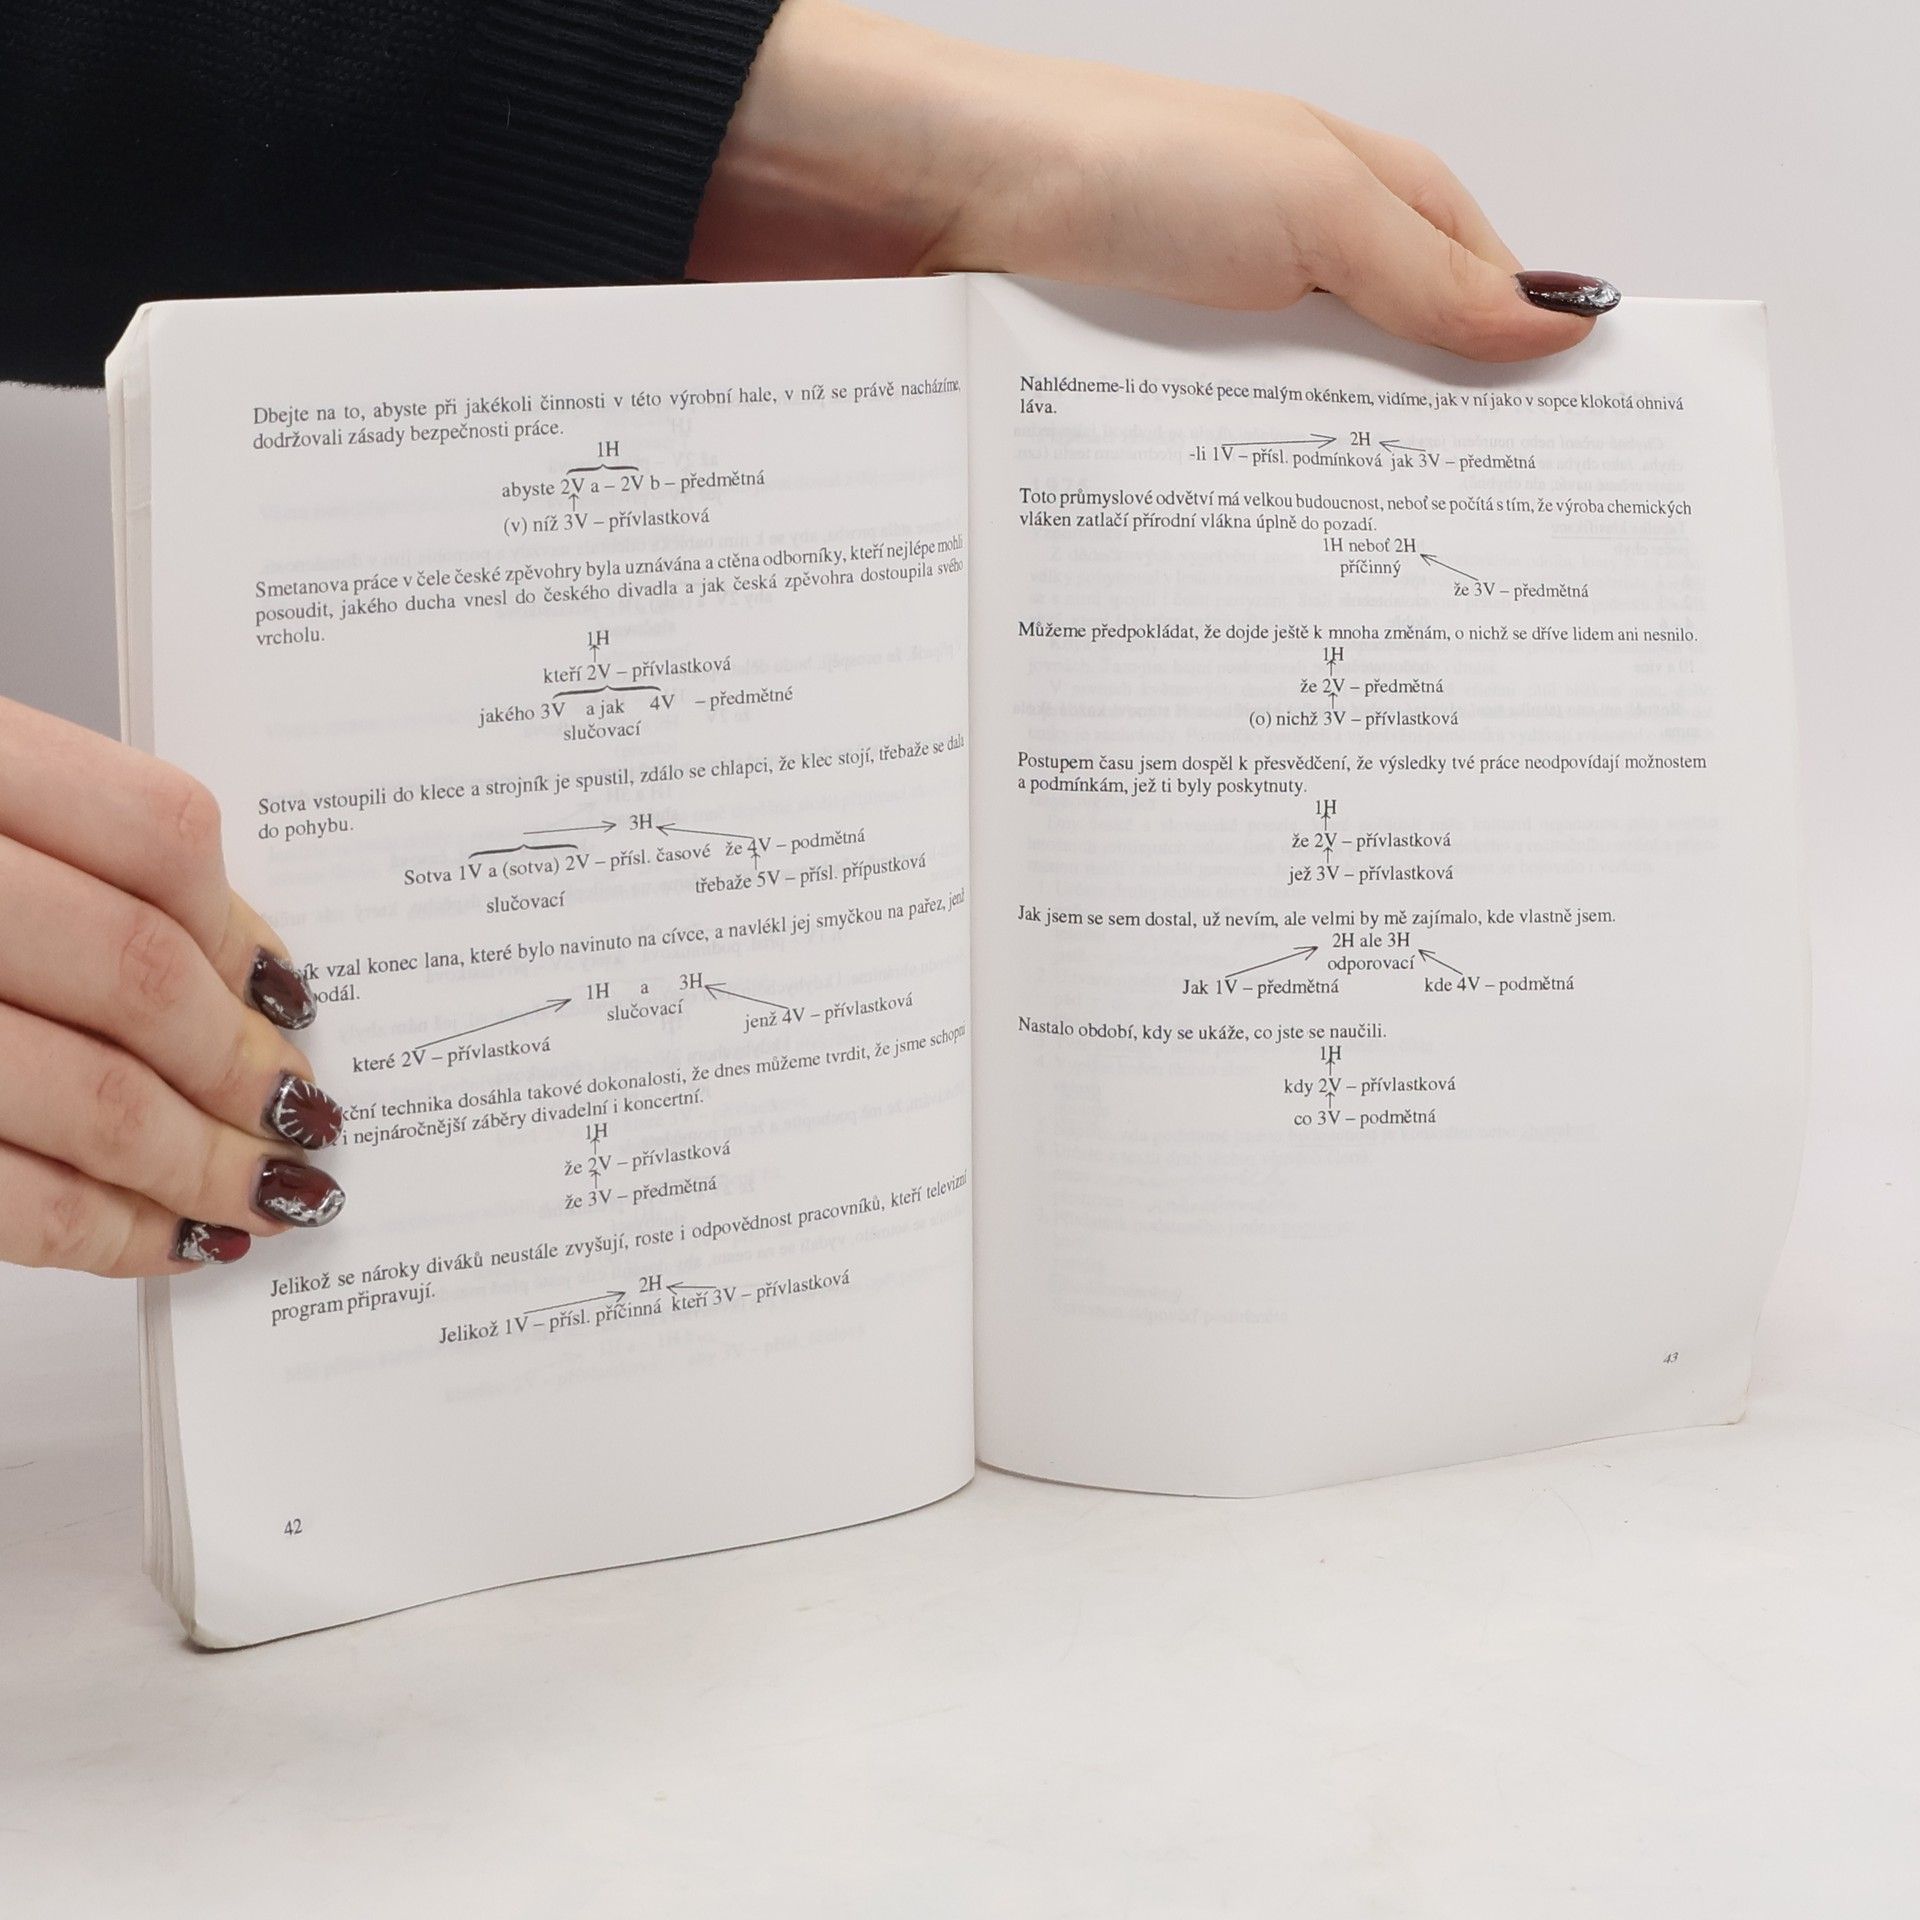 Dbejte na to, abyste při jakékoli činnosti v této výrobní hale, v níž se právě nacházíme,
dodržovali zásady bezpečnosti práce.
1H
abyste 2V a – 2V b – předmětná
(v) níž 3V – přívlastková
Smetanova práce v čele české zpěvohry byla uznávána a ctěna odborníky, kteří nejlépe mohli
posoudit, jakého ducha vnesl do českého divadla a jak česká zpěvohra dostoupila svého
vrcholu.
1H
kteří 2V – přívlastková
jakého 3V a jak 4V – předmětné
slučovací
Sotva vstoupili do klece a strojník je spustil, zdálo se chlapci, že klec stojí, třebaže se dala
do pohybu.
3H
Sotva 1V a (sotva) 2V – přísl. časové že 4V – podmětná
slučovací třebaže 5V – přísl. přípustková
vzal konec lana, které bylo navinuto na cívce, a navlékl jej smyčkou na pařez, jenž
1H a 3H
slučovací
jenž 4V – přívlastková
které 2V – přívlastková
technika dosáhla takové dokonalosti, že dnes můžeme tvrdit, že jsme schopni
i nejnáročnější záběry divadelní i koncertní.
1H
že 2V – přívlastková
že 3V – předmětná
Jelikož se nároky diváků neustále zvyšují, roste i odpovědnost pracovníků, kteří televizní
program připravují.
2H
Jelikož 1V – přísl. příčinná kteří 3V – přívlastková
42
Nahlédneme-li do vysoké pece malým okénkem, vidíme, jak v ní jako v sopce klokotá ohnivá
láva.
2H
-li 1V – přísl. podmínková jak 3V – předmětná
Toto průmyslové odvětví má velkou budoucnost, neboť se počítá s tím, že výroba chemických
vláken zatlačí přírodní vlákna úplně do pozadí.
1H neboť 2H
příčinný
že 3V – předmětná
Můžeme předpokládat, že dojde ještě k mnoha změnám, o nichž se dříve lidem ani nesnilo.
1H
že 2V – předmětná
(o) nichž 3V – přívlastková
Postupem času jsem dospěl k přesvědčení, že výsledky tvé práce neodpovídají možnostem
a podmínkám, jež ti byly poskytnuty.
1H
že 2V – přívlastková
jež 3V – přívlastková
Jak jsem se sem dostal, už nevím, ale velmi by mě zajímalo, kde vlastně jsem.
2H ale 3H
odporovací
Jak 1V – předmětná kde 4V – podmětná
Nastalo období, kdy se ukáže, co jste se naučili.
1H
kdy 2V – přívlastková
co 3V – podmětná
43